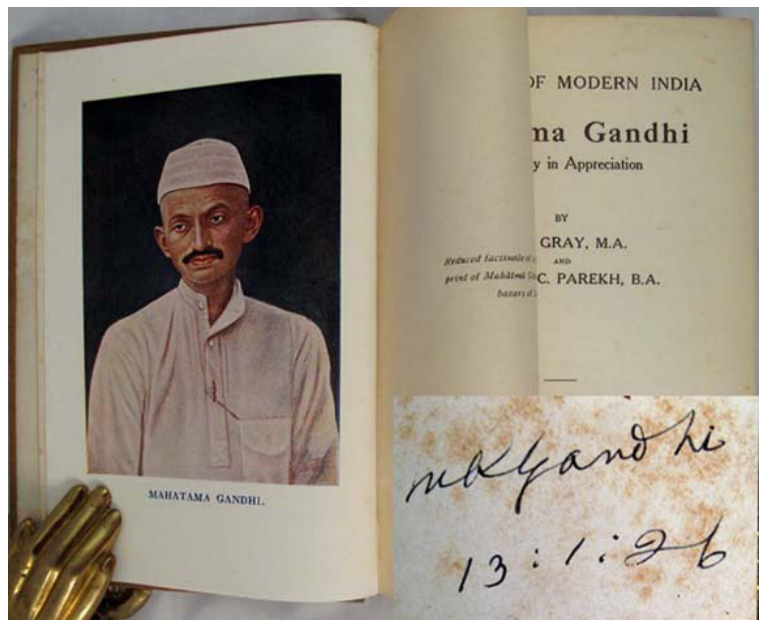 MAHATAMA GANDHI.
OF MODERN INDIA
ma Gandhi
y in Appreciation
BY
GRAY, M.A.
AND
C. PAREKH, B.A.
Reduced facsimile
print of Mahâtmâ
bazars
MKGandhi
13:1:26